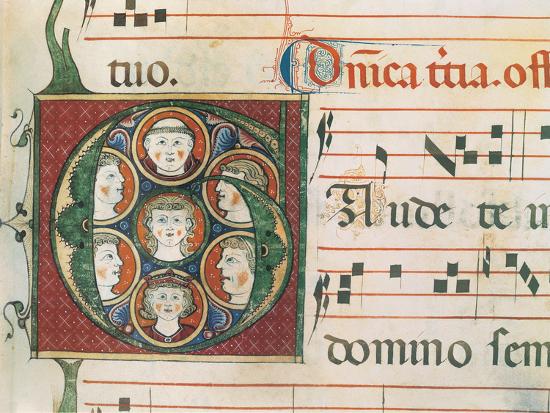 tuo. Dñica t̃cia. off
GAude te in
domino sem